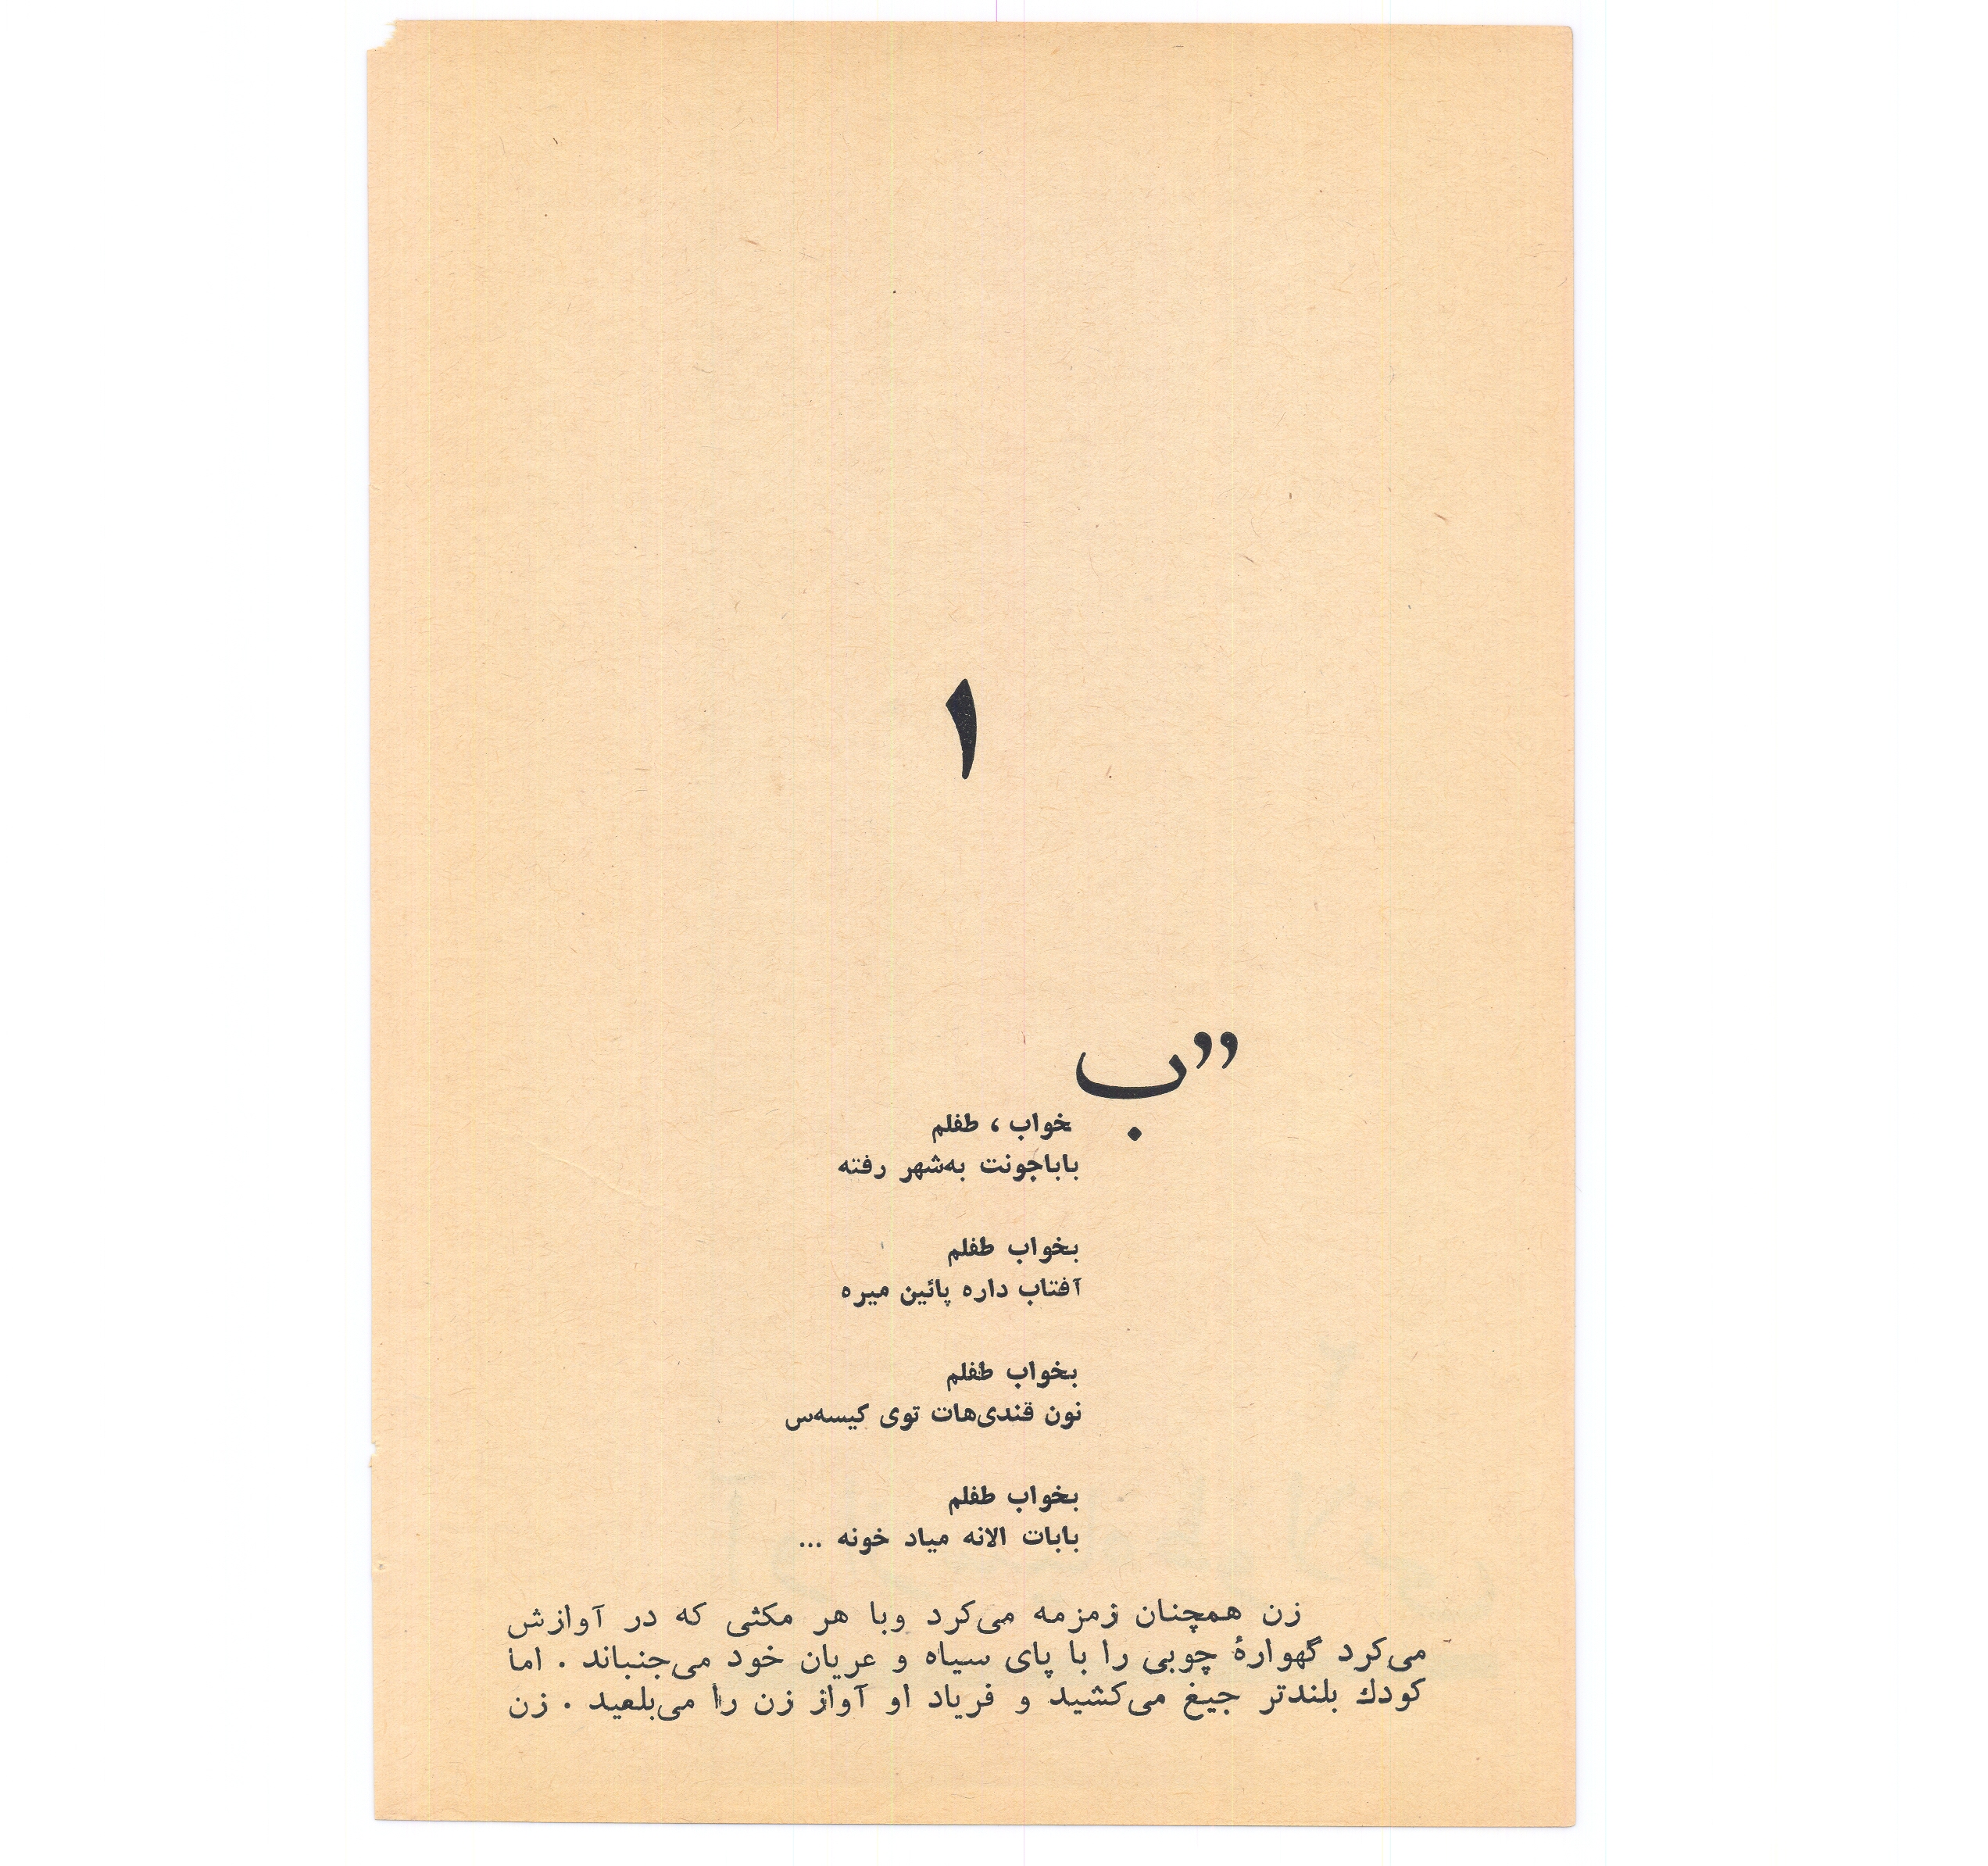 ۱
”ب
خواب ، طفلم
باباجونت به‌شهر رفته
بخواب طفلم
آفتاب داره پائین میره
بخواب طفلم
نون قندی‌هات توی کیسه‌س
بخواب طفلم
بابات الانه میاد خونه ...
زن همچنان زمزمه می‌کرد وبا هر مکثی که در آوازش
می‌کرد گهوارهٔ چوبی را با پای سیاه و عریان خود می‌جنباند . اما
کودك بلندتر جیغ می‌کشید و فریاد او آواز زن را می‌بلعید . زن